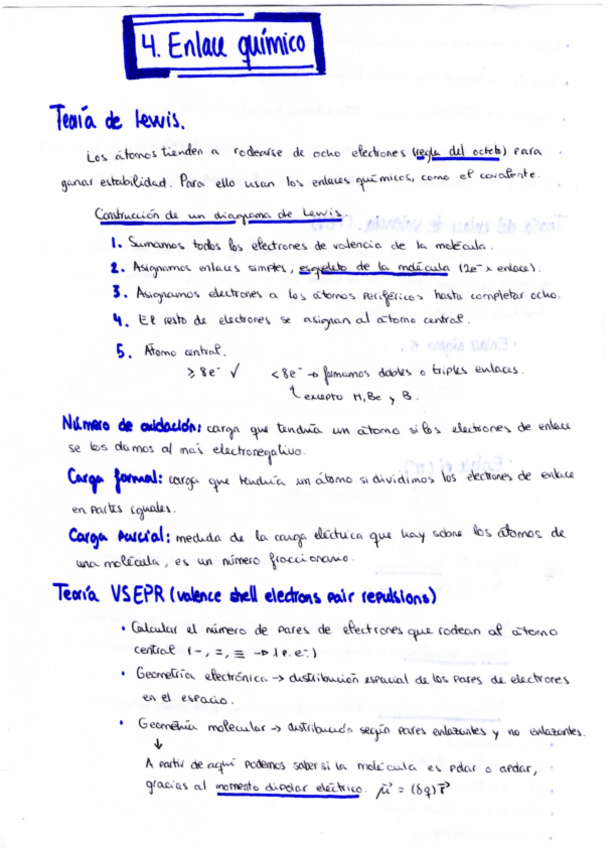 4. Enlace químico
Teoría de Lewis.
Los átomos tienden a rodearse de ocho electrones (regla del octeto) para
ganar estabilidad. Para ello usan los enlaces químicos, como el covalente.
Construcción de un diagrama de Lewis.
1. Sumamos todos los electrones de valencia de la molécula.
2. Asignamos enlaces simples, esqueleto de la molécula (2e⁻ x enlace).
3. Asignamos electrones a los átomos periféricos hasta completar ocho.
4. El resto de electrones se asignan al átomo central.
5. Átomo central.
≥ 8e⁻ ✓ < 8e⁻ → formamos dobles o triples enlaces.
↳ excepto H, Be y B.
Número de oxidación: carga que tendría un átomo si los electrones de enlace
se los damos al más electronegativo.
Carga formal: carga que tendría un átomo si dividimos los electrones de enlace
en partes iguales.
Carga parcial: medida de la carga eléctrica que hay sobre los átomos de
una molécula, es un número fraccionario.
Teoría VSEPR (valence shell electrons pair repulsions)
• Calcular el número de pares de electrones que rodean al átomo
central (-, =, ≡ → 1 p. e⁻)
• Geometría electrónica → distribución espacial de los pares de electrones
en el espacio.
• Geometría molecular → distribución según pares enlazantes y no enlazantes.
↓
A partir de aquí podemos saber si la molécula es polar o apolar,
gracias al momento dipolar eléctrico. μ⃗ = (δq) r⃗